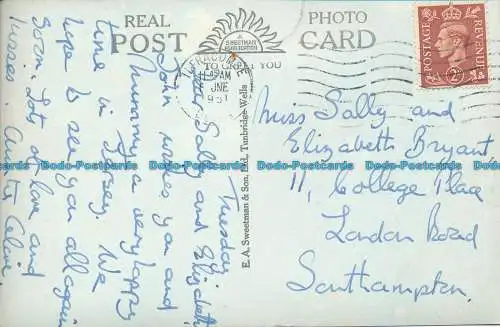 REAL PHOTO
POST CARD
A SWEETMAN PUBLICATION
TO GREET YOU
POSTAGE REVENUE
2D
JNE
E. A. Sweetman & Son, Ltd., Tunbridge Wells
Tuesday
Sally and Elizabeth
John wishes you and
Mummy a very happy
time in Jersey. We
hope to see you all again
soon. Lots of love and
kisses. Auntie Celine.
Miss Sally and
Elizabeth Bryant
11, College Place
London Road
Southampton.
Dodo-Postcards Dodo-Postcards Dodo-Postcards Dodo-Postcards Dodo-Postcards